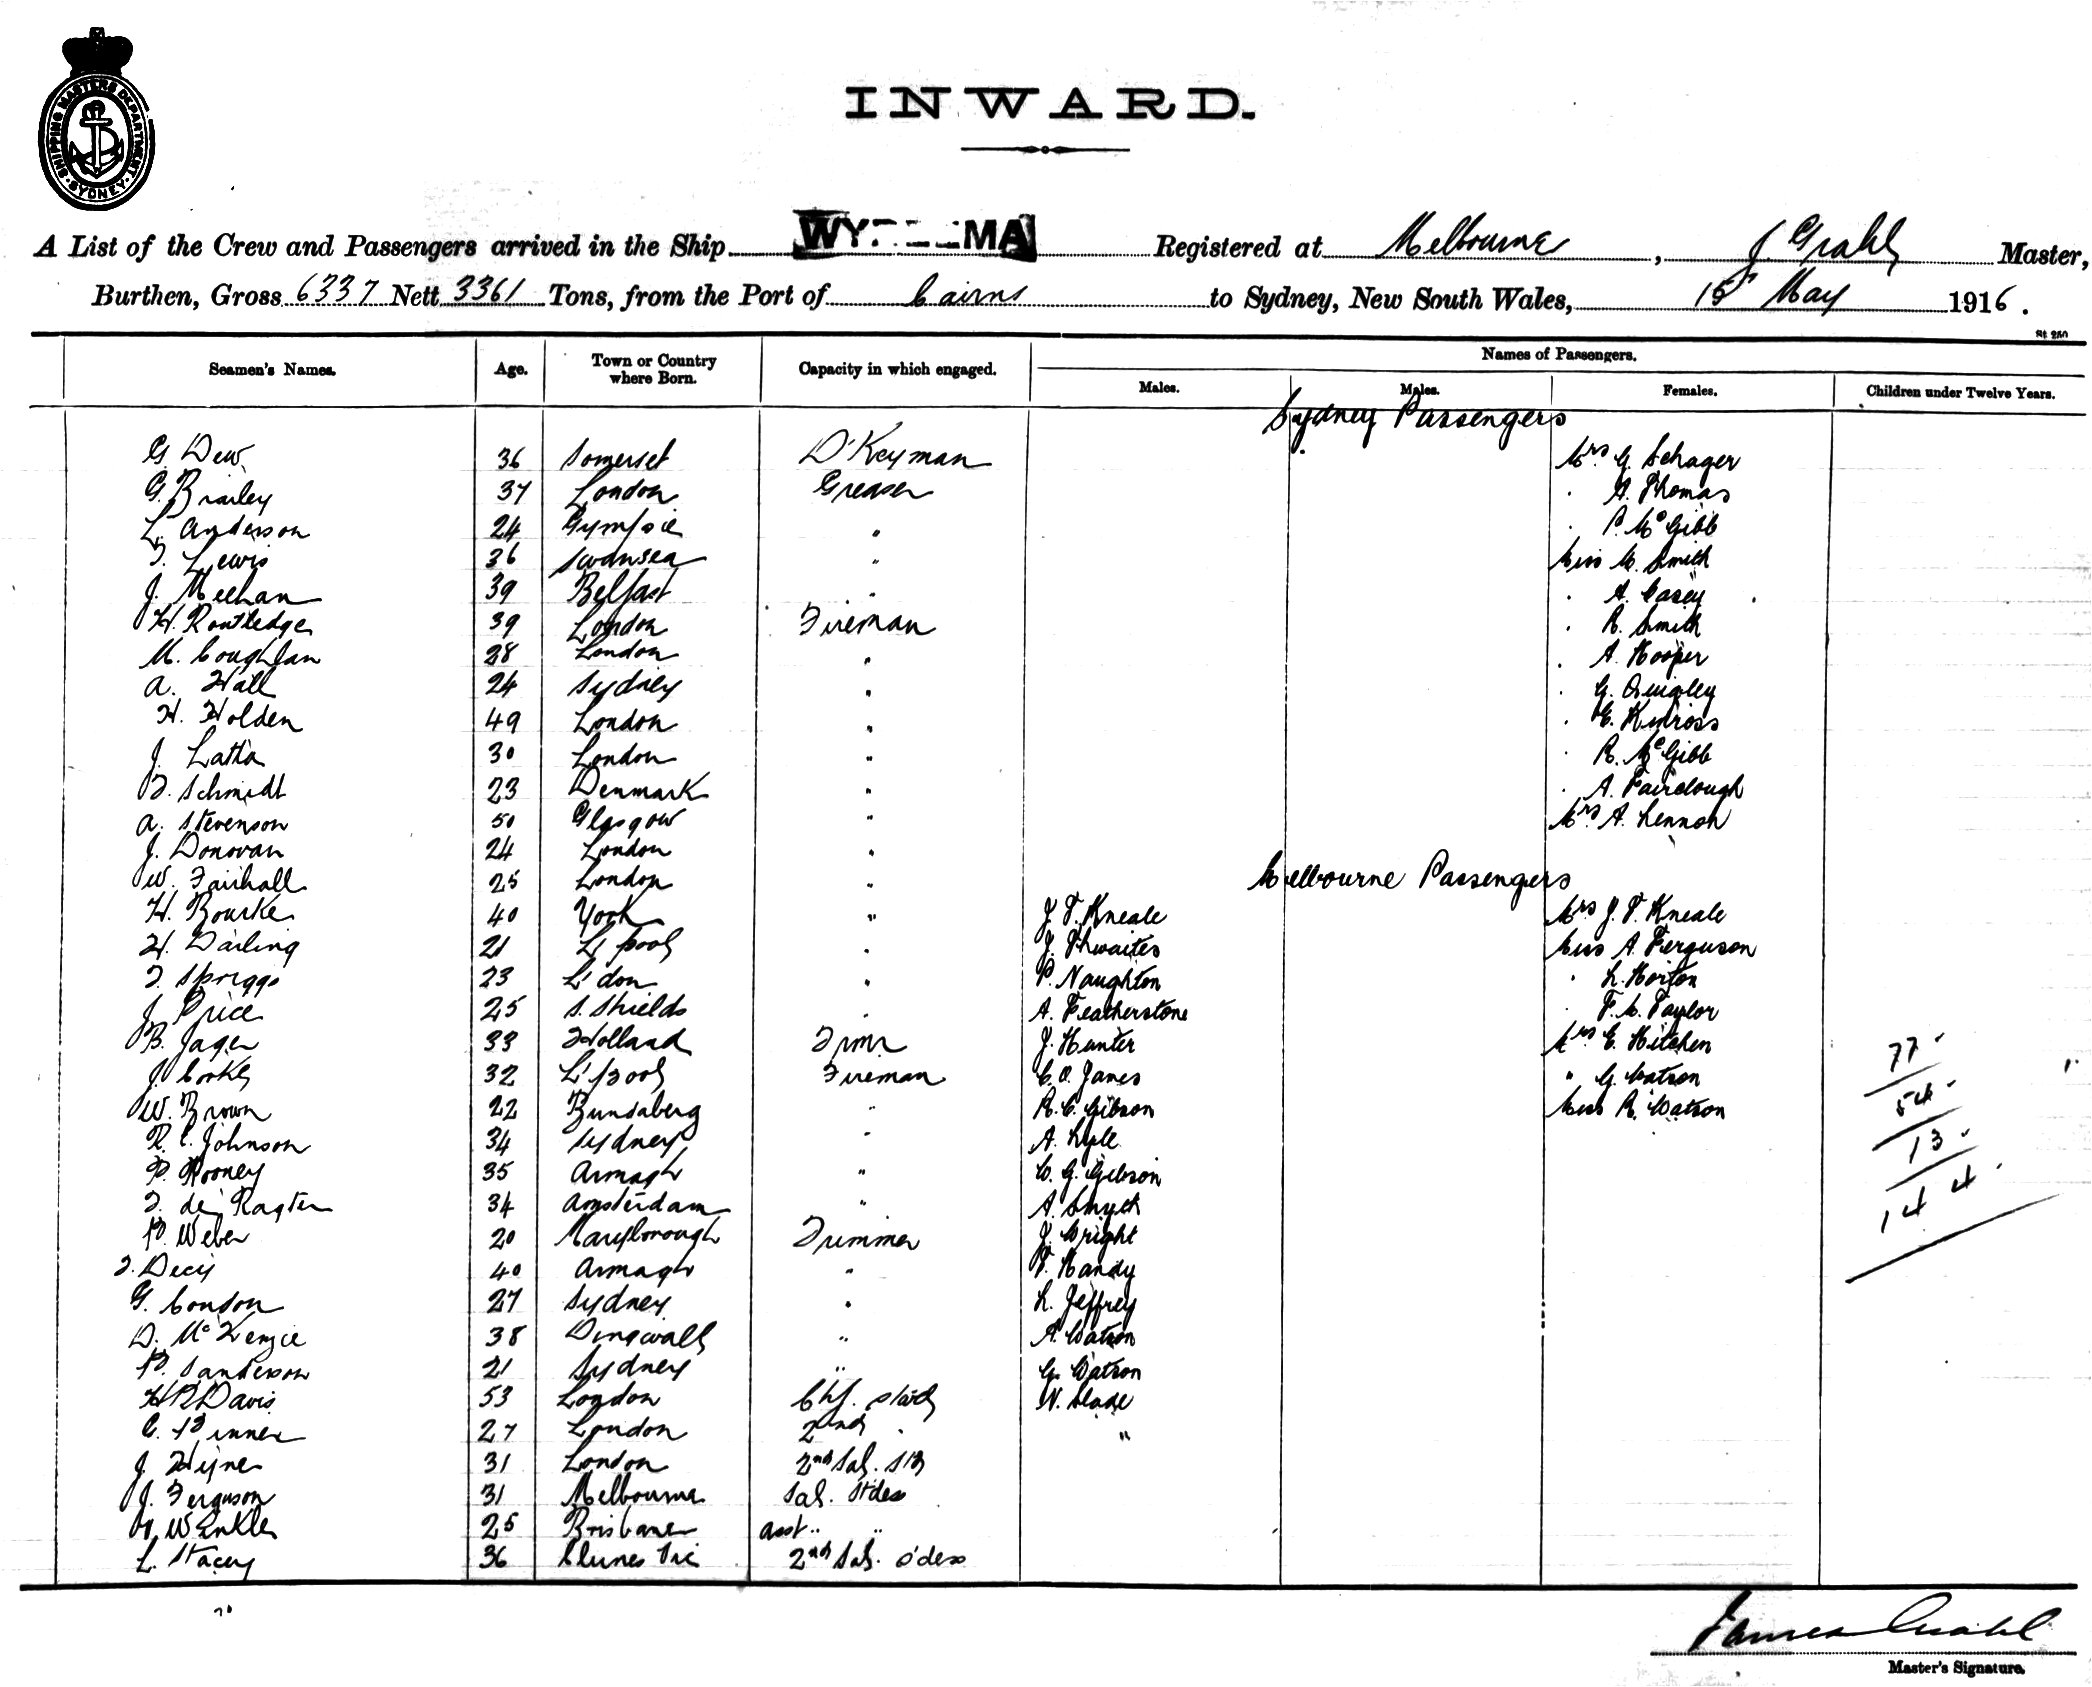 SHIPPING MASTERS DEPARTMENT · SYDNEY ·
INWARD.
A List of the Crew and Passengers arrived in the Ship WY MA Registered at Melbourne, J. Grahl Master,
Burthen, Gross 6337 Nett 3361 Tons, from the Port of Cairns to Sydney, New South Wales, 15 May 1916.
St 250
Seamen's Names. Age. Town or Country where Born. Capacity in which engaged. Names of Passengers.
Males. Males. Females. Children under Twelve Years.
Sydney Passengers
G. Dew 36 Somerset D'Keyman Mrs G. Schager
G. Brailey 37 London Greaser . A. Thomas
L. Anderson 24 Gympie " . P. McGibb
T. Lewis 36 Swansea " Miss M. Smith
J. Meehan 39 Belfast " . A. Casey
H. Routledge 39 London Fireman . R. Smith
M. Coughlan 28 London " . A. Hooper
A. Hall 24 Sydney " . G. Quigley
H. Holden 49 London " . E. Kinross
J. Latta 30 London " . R. McGibb
F. Schmidt 23 Denmark " . A. Fairclough
A. Stevenson 50 Glasgow " Mrs A. Lennon
J. Donovan 24 London "
W. Fairhall 25 London " Melbourne Passengers
H. Bourke 40 York " J. T. Kneale Mrs J. T. Kneale
H. Darling 21 L'pool " J. Thwaites Miss A. Ferguson
F. Spriggs 23 L'don " P. Naughton . L. Horton
J. Price 25 S. Shields " A. Featherstone . F. M. Taylor
B. Jager 33 Holland J. Hunter Mrs E. Hitchen
J. Corke 32 L'pool Fireman C. O. Janes " G. Watson
W. Brown 22 Bundaberg " R. C. Gibson Miss R. Watson
R. C. Johnson 34 Sydney " A. Lyle
P. Rooney 35 Armagh " W. G. Gibson
34 Amsterdam " A. Smyth
P. Weber 20 Maryborough Trimmer J. Wright
40 Armagh " T. Handy
G. Condon 27 Sydney " L. Jeffrey
D. McKenzie 38 Dingwall " A. Watson
P. Sanderson 21 Sydney " G. Watson
H R Davis 53 London Chf. N. Slade
C. Pinner 27 London 2nd " "
J. Hyne 31 London 2nd Sal.
J. Ferguson 31 Melbourne Sal. Stdess
Winkle 25 Brisbane Asst " "
L. Stacey 36 Clunes Vic 2nd Sal. S'dess
77
54
13
144
James Grahl
Master's Signature.